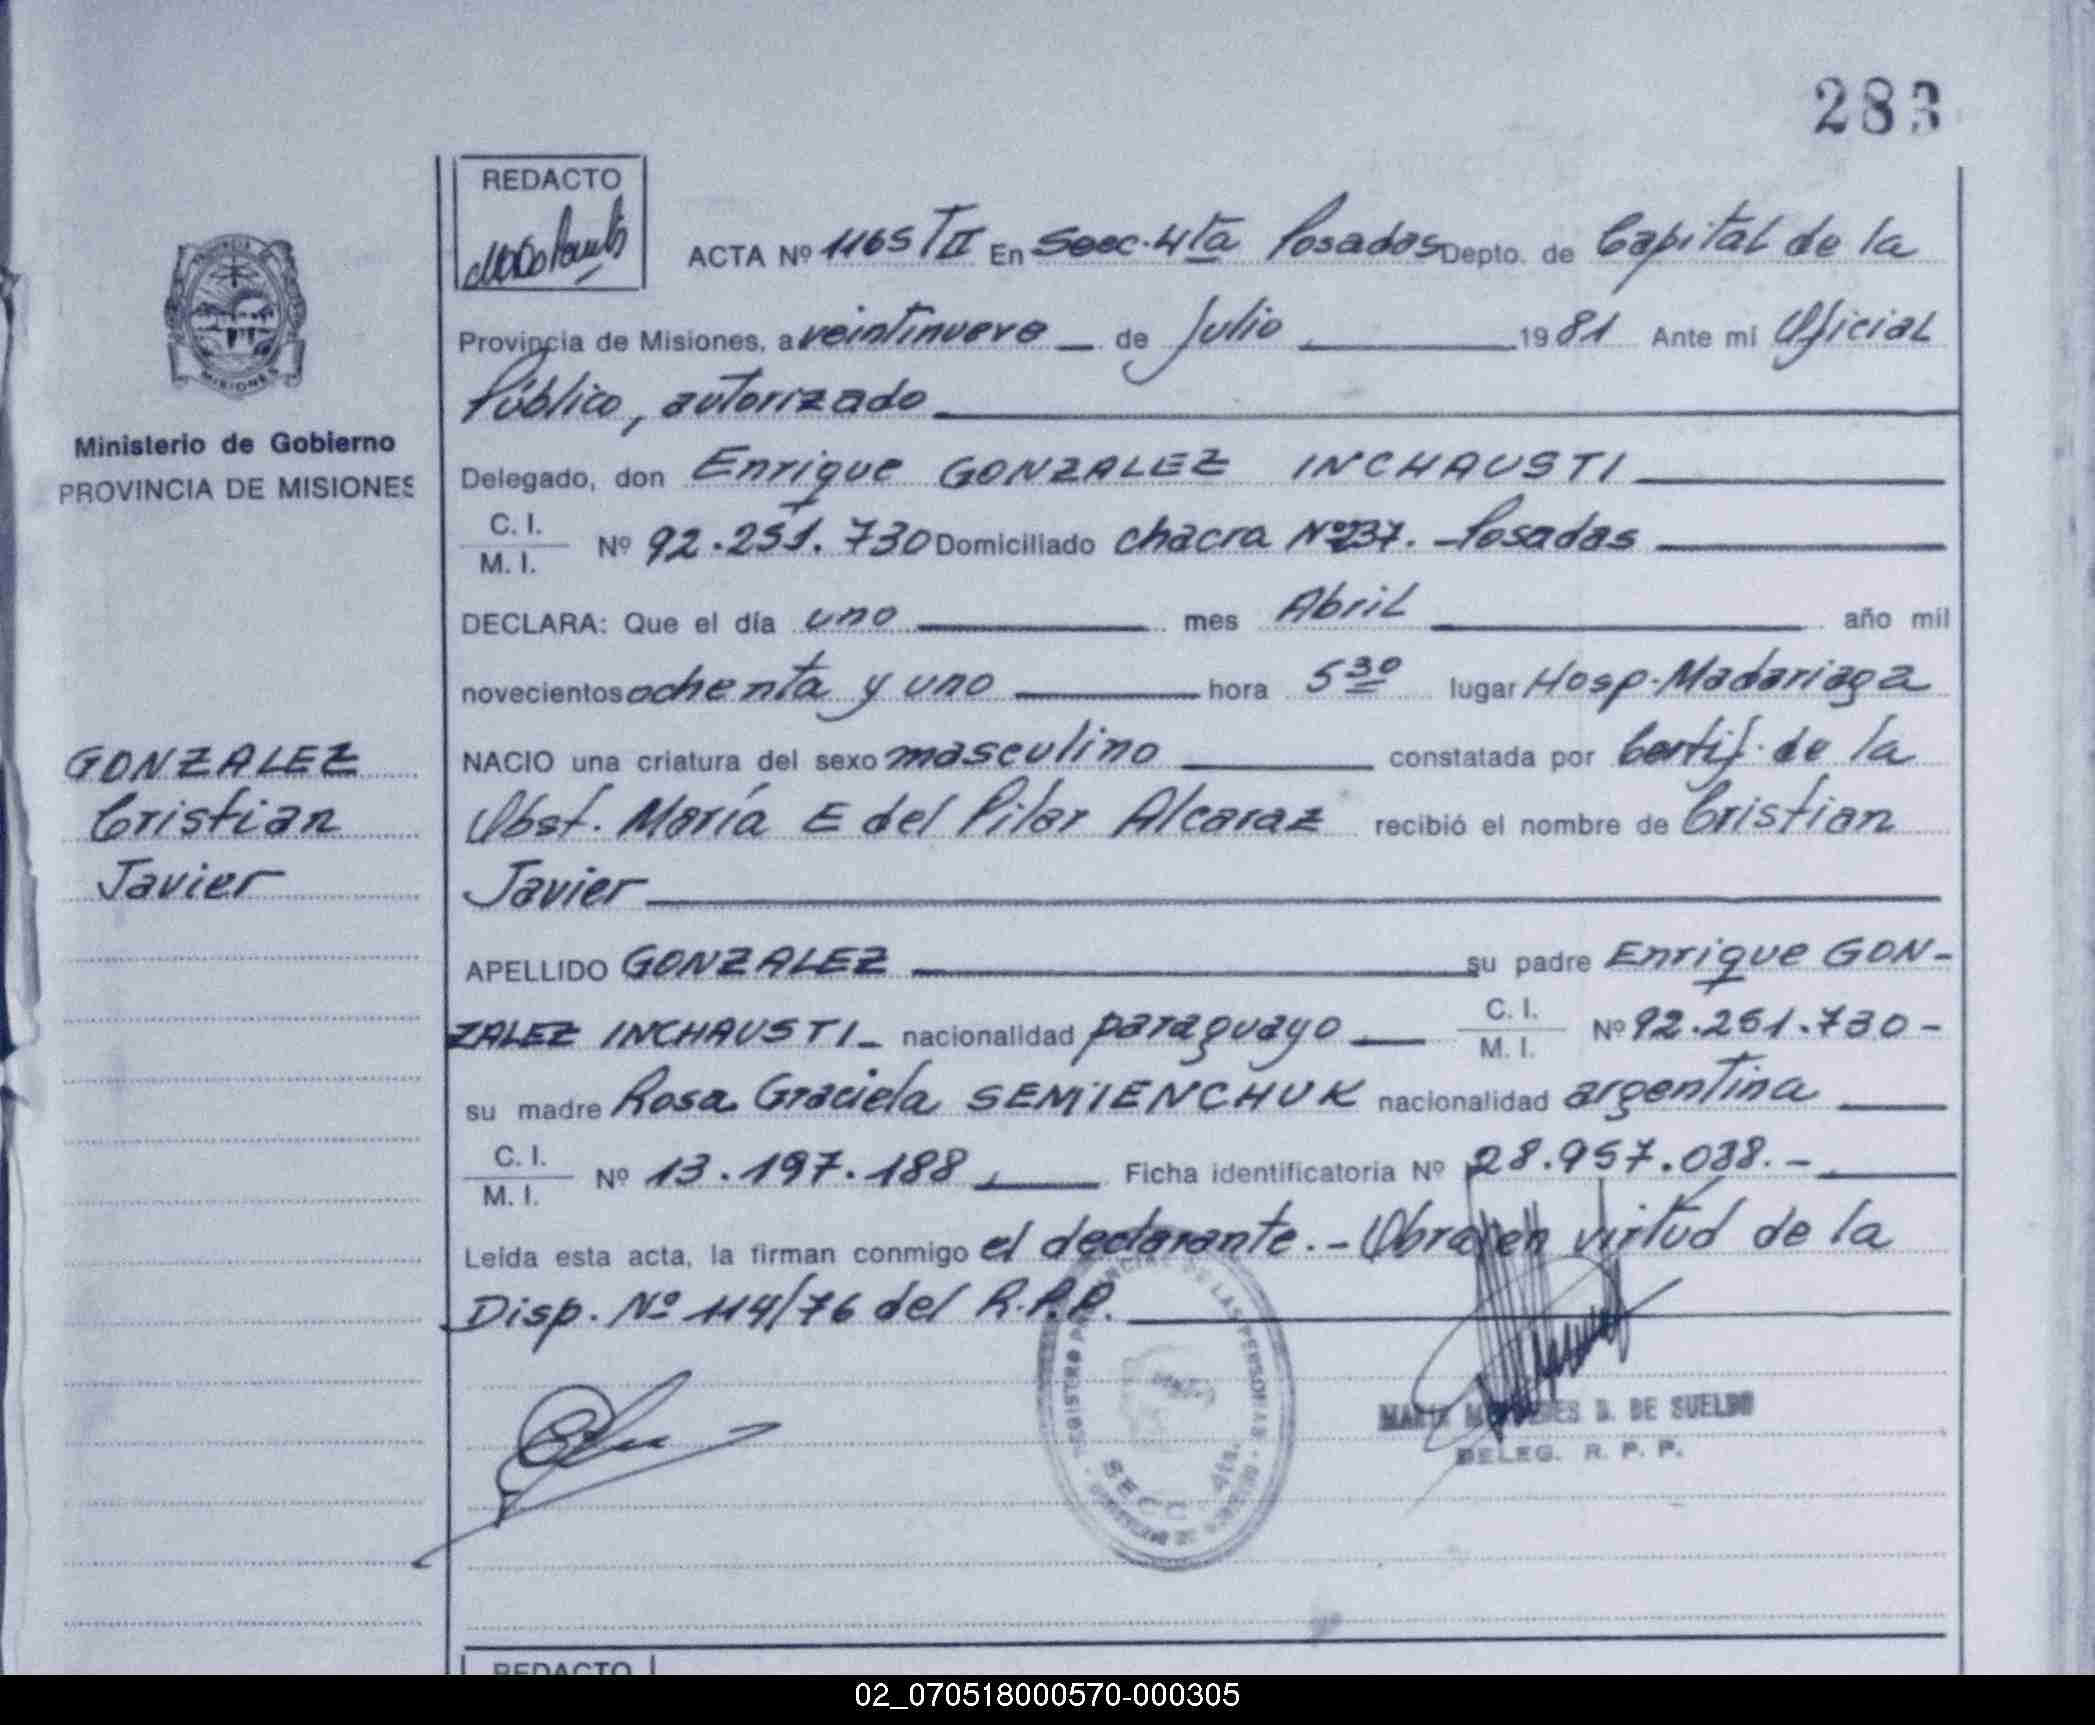 283
REDACTO
ACTA Nº 1165 TII En Secc. 4ta Posadas Depto. de Capital de la
Provincia de Misiones, a veintinueve de Julio 1981 Ante mi Oficial
Público, autorizado
Ministerio de Gobierno
PROVINCIA DE MISIONES
Delegado, don Enrique GONZALEZ INCHAUSTI
C. I.
M. I. Nº 92.251.730 Domiciliado chacra Nº 237. - Posadas
DECLARA: Que el día uno mes Abril año mil
novecientos ochenta y uno hora 5 30 lugar Hosp. Madariaga
GONZALEZ
Cristian
Javier
NACIO una criatura del sexo masculino constatada por Certif. de la
Obst. María E del Pilar Alcaraz recibió el nombre de Cristian
Javier
APELLIDO GONZALEZ su padre Enrique GON-
ZALEZ INCHAUSTI - nacionalidad paraguayo C. I.
M. I. Nº 92.251.730 -
su madre Rosa Graciela SEMIENCHUK nacionalidad argentina
C. I.
M. I. Nº 13.197.188 Ficha identificatoria Nº 28.957.038. -
Leída esta acta, la firman conmigo el declarante. - Obra en virtud de la
Disp. Nº 114/76 del R.P.P.
REGISTRO PROVINCIAL DE LAS PERSONAS
SECC. 4ta.
MARIA D. DE SUELDO
DELEG. R. P. P.
REDACTO
02_070518000570-000305